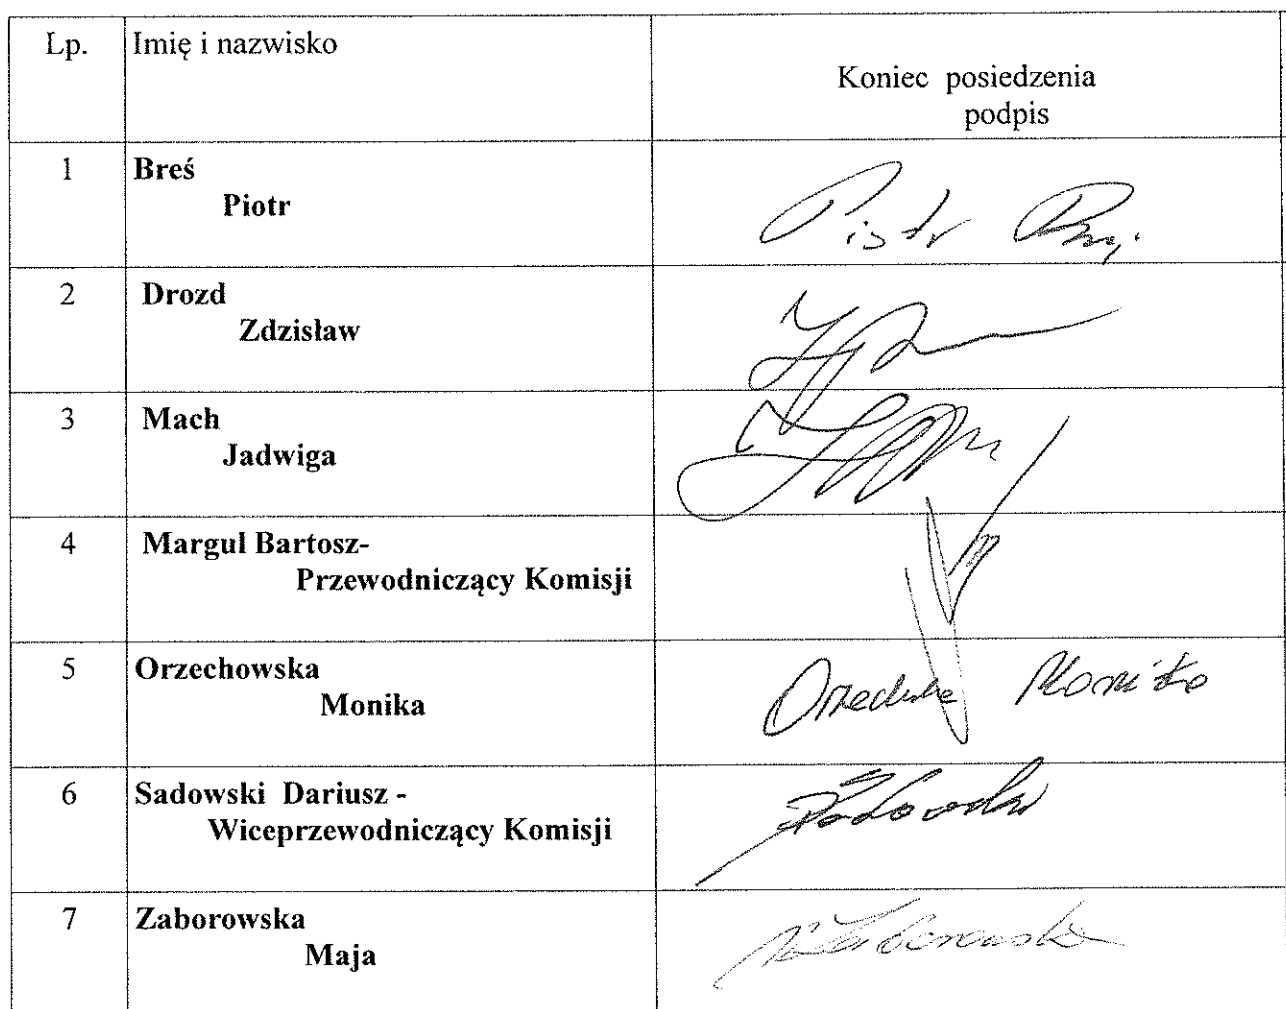 Lp. Imię i nazwisko
Koniec posiedzenia
podpis
1 Breś
Piotr
Piotr
2 Drozd
Zdzisław
3 Mach
Jadwiga
4 Margul Bartosz-
Przewodniczący Komisji
5 Orzechowska
Monika
Monika
6 Sadowski Dariusz -
Wiceprzewodniczący Komisji
7 Zaborowska
Maja
Zaborowska